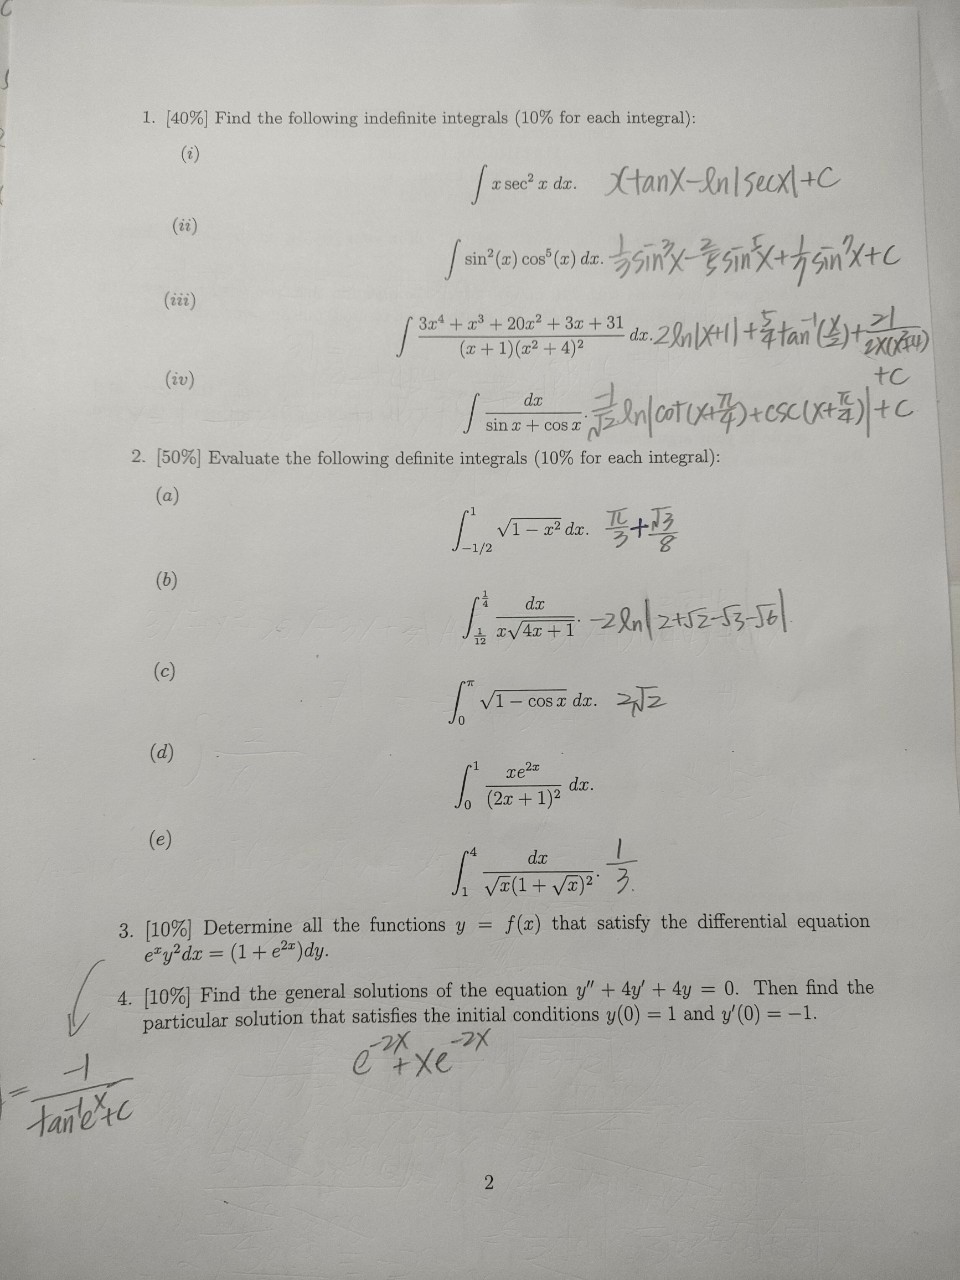 1. [40%] Find the following indefinite integrals (10% for each integral):
(i)
∫ x sec² x dx. xtanx-ln|secx|+C
(ii)
∫ sin²(x) cos⁵(x) dx. 1/3 sin³x-2/5 sin⁵x+1/7 sin⁷x+C
(iii)
∫ (3x⁴ + x³ + 20x² + 3x + 31)/((x + 1)(x² + 4)²) dx. 2ln|x+1|+5/4 tan⁻¹(x/2)+
+C
(iv)
∫ dx/(sin x + cos x). -1/√2 ln|cot(x+π/4)+csc(x+π/4)|+C
2. [50%] Evaluate the following definite integrals (10% for each integral):
(a)
∫_{-1/2}^{1} √(1 − x²) dx. π/3+√3/8
(b)
∫_{1/12}^{1/4} dx/(x√(4x + 1)). -2ln|2+√2-√3-√6|
(c)
∫_0^π √(1 − cos x) dx. 2√2
(d)
∫_0^1 xe^{2x}/(2x + 1)² dx.
(e)
∫_1^4 dx/(√x(1 + √x)²). 1/3.
3. [10%] Determine all the functions y = f(x) that satisfy the differential equation
eˣy²dx = (1 + e²ˣ)dy.
4. [10%] Find the general solutions of the equation y″ + 4y′ + 4y = 0. Then find the
particular solution that satisfies the initial conditions y(0) = 1 and y′(0) = −1.
e^{-2x}+xe^{-2x}
= -1/(tan⁻¹eˣ+C)
2